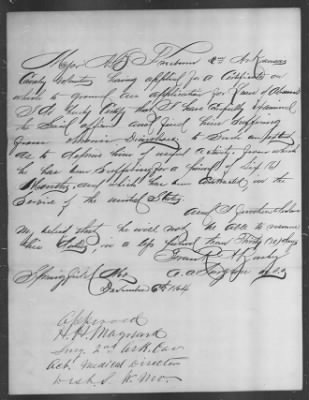 Major A. B. Freeburn 2nd Arkansas
Cavalry Volunteers having applied for a Certificate on
which to ground an application for Leave of Absence
I do hereby Certify that I have carefully examined
this officer and find him suffering
from chronic Diarrhoea to such an extent
as to deprive him of natural activity from which
he has been suffering for a period of Six (6)
Months, and which has been contracted in the
Service of the United States.
And I further declare
my belief that he will not be able to resume
his duties, in a less period than Thirty (30) days
Springfield Mo
December 6th 1864
Approved
H. H. Maynard
Surg 2nd Ark. Cav
Act. Medical Director
Dist. S. W. Mo.